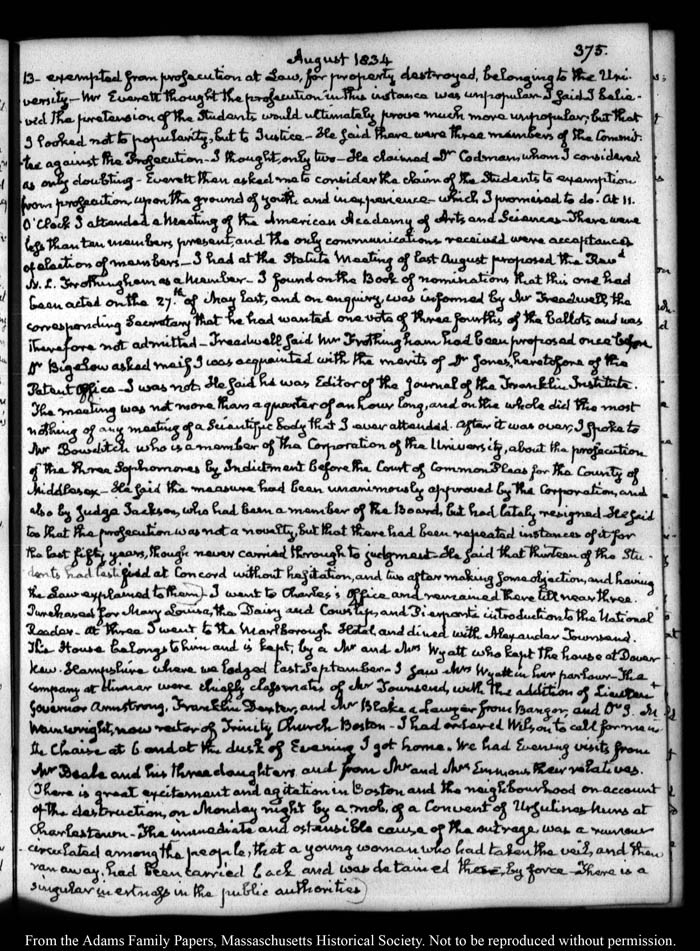 August 1834
375.
13 - exempted from prosecution at Law, for property destroyed, belonging to the Uni-
versity - Mr Everett thought the prosecution in this instance was unpopular. I said I belie-
ved the pretension of the Students would ultimately prove much more unpopular; but that
I looked not to popularity, but to Justice - He said there were three members of the Commit-
tee against the Prosecution - I thought, only two - He claimed Dr Codman, whom I considered
as only doubting - Everett then asked me to consider the claim of the Students to exemption
from prosecution, upon the ground of youth and inexperience - which I promised to do. At 11.
O'Clock I attended a Meeting of the American Academy of Arts and Sciences - There were
less than ten members present, and the only communications received were acceptances
of election of members - I had at the Statute Meeting of last August proposed the Revd
N. L. Frothingham as a Member - I found on the Book of nominations that this one had
been acted on the 27.th of May last, and on enquiry, was informed by Mr Treadwell the
corresponding Secretary that he had wanted one vote of three fourths of the ballots and was
therefore not admitted - Treadwell said Mr Frothingham had been proposed once before
Dr Bigelow asked me if I was acquainted with the merits of Dr Jones, heretofore of the
Patent Office - I was not. He said he was Editor of the Journal of the Franklin Institute.
The meeting was not more than a quarter of an hour long, and on the whole did the most
nothing of any meeting of a Scientific body that I ever attended. After it was over, I spoke to
Mr Bowditch who is a member of the Corporation of the University, about the prosecution
of the three Sophomores by Indictment before the Court of Common Pleas for the County of
Middlesex - He said the measure had been unanimously approved by the Corporation, and
also by Judge Jackson, who had been a member of the Board, but had lately resigned. He said
too that the prosecution was not a novelty, but that there had been repeated instances of it for
the last fifty years, though never carried through to judgment - He said that thirteen of the Stu-
dents had testified at Concord without hesitation, and two after making some objection, and having
the Law explained to them) - I went to Charles's Office and remained there till near three.
Purchased for Mary Louisa, the Dairy and Cowslip, and Pierponts introduction to the National
Reader - At three I went to the Marlborough Hotel, and dined with Alexander Townsend.
This House belongs to him and is kept, by a Mr and Mrs Wyatt who kept the house at Dover
New-Hampshire where we lodged last September - I saw Mrs Wyatt in her parlour - The
company at dinner were chiefly classmates of Mr Townsend, with the addition of Lieutent
Governor Armstrong, Franklin Dexter, and Mr Blake a Lawyer from Bangor, and Dr J. M.
Wainwright, now rector of Trinity Church Boston - I had ordered Wilson to call for me in
the Chaise at 6 and at the dusk of Evening I got home. We had Evening visits from
Mr Beale and his three daughters and from Mr and Mrs Emmons their relatives.
(There is great excitement and agitation in Boston and the neighbourhood on account
of the destruction, on Monday night by a mob, of a Convent of Ursuline Nuns at
Charlestown - The immediate and ostensible cause of the outrage was a rumour
circulated among the people, that a young woman who had taken the veil, and then
ran away, had been carried back and was detained there, by force - There is a
singular inertness in the public authorities)
From the Adams Family Papers, Massachusetts Historical Society. Not to be reproduced without permission.